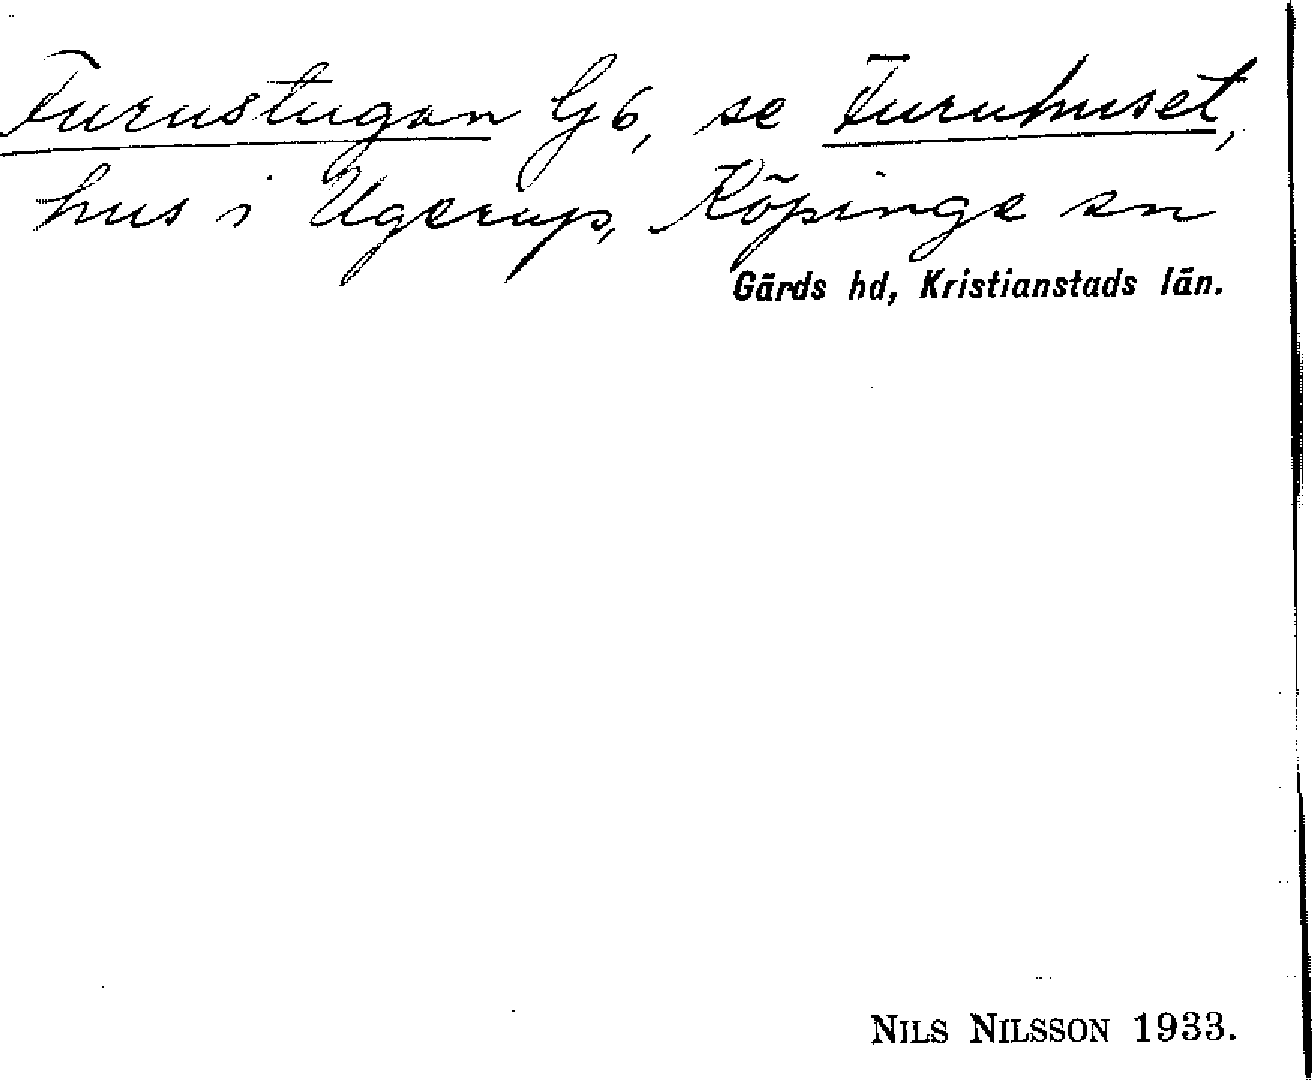 Furustugan G6, se Furuhuset,
hus i Ugerup, Köpinge sn
Gärds hd, Kristianstads län.
NILS NILSSON 1933.